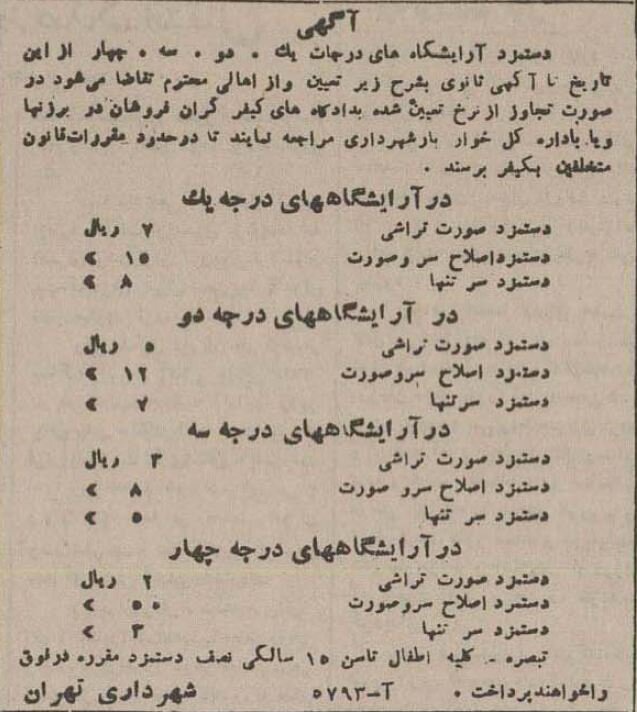 آگهی
دستمزد آرایشگاه های درجات یك . دو . سه . چهار از این
تاریخ تا آگهی ثانوی بشرح زیر تعیین و از اهالی محترم تقاضا می‌شود در
صورت تجاوز از نرخ تعیین شده بدادگاه های کیفر گران فروشان در برزنها
و یا باداره کل خوار بار شهرداری مراجعه نمایند تا در حدود مقررات قانون
متخلفین بکیفر برسند .
در آرایشگاههای درجه یك
دستمزد صورت تراشی ۷ ریال
دستمزد اصلاح سر و صورت ۱۵ »
دستمزد سر تنها ۸ »
در آرایشگاههای درجه دو
دستمزد صورت تراشی ۵ ریال
دستمزد اصلاح سر و صورت ۱۲ »
دستمزد سر تنها ۷ »
در آرایشگاههای درجه سه
دستمزد صورت تراشی ۳ ریال
دستمزد اصلاح سر و صورت ۸ »
دستمزد سر تنها ۵ »
در آرایشگاههای درجه چهار
دستمزد صورت تراشی ۲ ریال
دستمزد اصلاح سر و صورت »
دستمزد سر تنها ۳ »
تبصره - کلیه اطفال تا سن ۱۵ سالگی نصف دستمزد مقرره در فوق
را خواهند پرداخت . آ-۵۷۹۳ شهرداری تهران